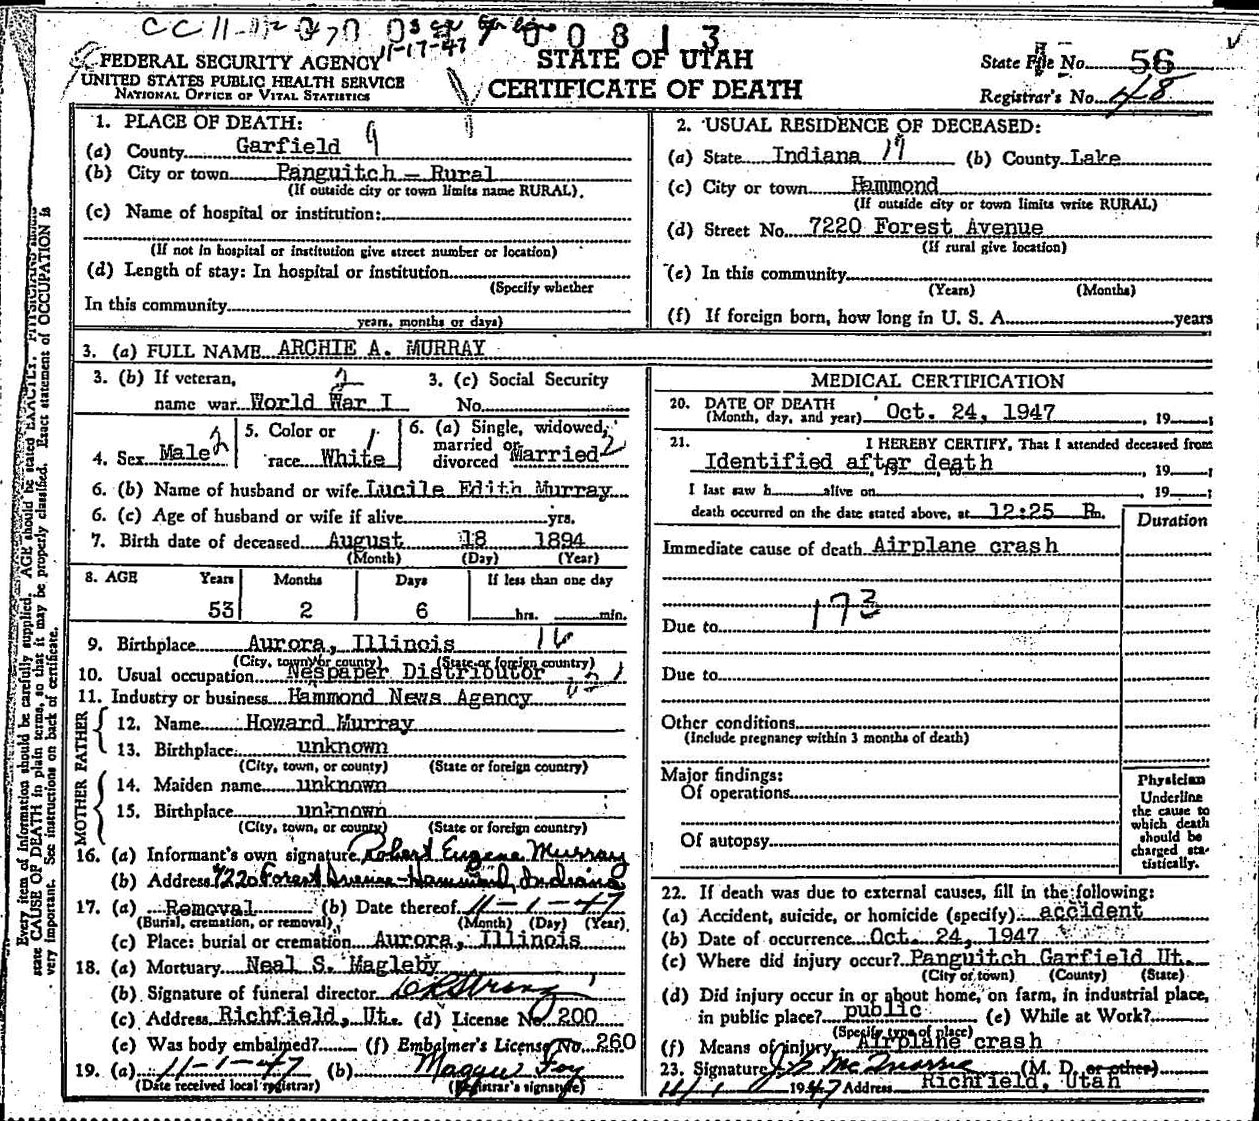 00813
11-17-47
FEDERAL SECURITY AGENCY
UNITED STATES PUBLIC HEALTH SERVICE
NATIONAL OFFICE OF VITAL STATISTICS
STATE OF UTAH
CERTIFICATE OF DEATH
State File No. 56
Registrar's No. 48
1. PLACE OF DEATH:
(a) County Garfield 9
(b) City or town Panguitch - Rural
(If outside city or town limits name RURAL).
(c) Name of hospital or institution:
(If not in hospital or institution give street number or location)
(d) Length of stay: In hospital or institution
(Specify whether
In this community
years, months or days)
2. USUAL RESIDENCE OF DECEASED:
(a) State Indiana 17 (b) County Lake
(c) City or town Hammond
(If outside city or town limits write RURAL)
(d) Street No. 7220 Forest Avenue
(If rural give location)
(e) In this community
(Years) (Months)
(f) If foreign born, how long in U. S. A. years
3. (a) FULL NAME ARCHIE A. MURRAY
3. (b) If veteran, 2
name war World War I
3. (c) Social Security
No.
4. Sex Male 2
5. Color or
race White 1
6. (a) Single, widowed,
married or
divorced Married 2
6. (b) Name of husband or wife Lucile Edith Murray
6. (c) Age of husband or wife if alive yrs.
7. Birth date of deceased August 18 1894
(Month) (Day) (Year)
8. AGE Years Months Days If less than one day
53 2 6 hrs. min.
9. Birthplace Aurora, Illinois 16
(City, town, or county) (State or foreign country)
10. Usual occupation Nespaper Distributor
11. Industry or business Hammond News Agency
FATHER
12. Name Howard Murray
13. Birthplace unknown
(City, town, or county) (State or foreign country)
MOTHER
14. Maiden name unknown
15. Birthplace unknown
(City, town, or county) (State or foreign country)
16. (a) Informant's own signature Robert Eugene Murray
(b) Address 7220 Forest Avenue - Hammond, Indiana
17. (a) Removal (b) Date thereof 11-1-47
(Burial, cremation, or removal) (Month) (Day) (Year)
(c) Place: burial or cremation Aurora, Illinois
18. (a) Mortuary Neal S. Magleby
(b) Signature of funeral director
(c) Address Richfield, Ut. (d) License No. 200
(e) Was body embalmed? (f) Embalmer's License No. 260
19. (a) 11-1-47 (b)
(Date received local registrar) (Registrar's signature)
MEDICAL CERTIFICATION
20. DATE OF DEATH
(Month, day, and year) Oct. 24, 1947, 19
21. I HEREBY CERTIFY, That I attended deceased from
Identified after death, 19
I last saw h alive on, 19
death occurred on the date stated above, at 12:25 Pm.
Duration
Immediate cause of death Airplane crash
173
Due to
Due to
Other conditions
(Include pregnancy within 3 months of death)
Major findings:
Of operations
Of autopsy
Physician
Underline
the cause to
which death
should be
charged sta-
tistically.
22. If death was due to external causes, fill in the following:
(a) Accident, suicide, or homicide (specify) accident
(b) Date of occurrence Oct. 24, 1947
(c) Where did injury occur? Panguitch Garfield Ut.
(City or town) (County) (State)
(d) Did injury occur in or about home, on farm, in industrial place,
in public place? public (e) While at Work?
(Specify type of place)
(f) Means of injury Airplane crash
23. Signature (M. D. or other)
11/1 1947 Address Richfield, Utah
Every item of information should be carefully supplied. AGE should be stated EXACTLY. PHYSICIANS should
state CAUSE OF DEATH in plain terms, so that it may be properly classified. Exact statement of OCCUPATION is
very important. See instructions on back of certificate.